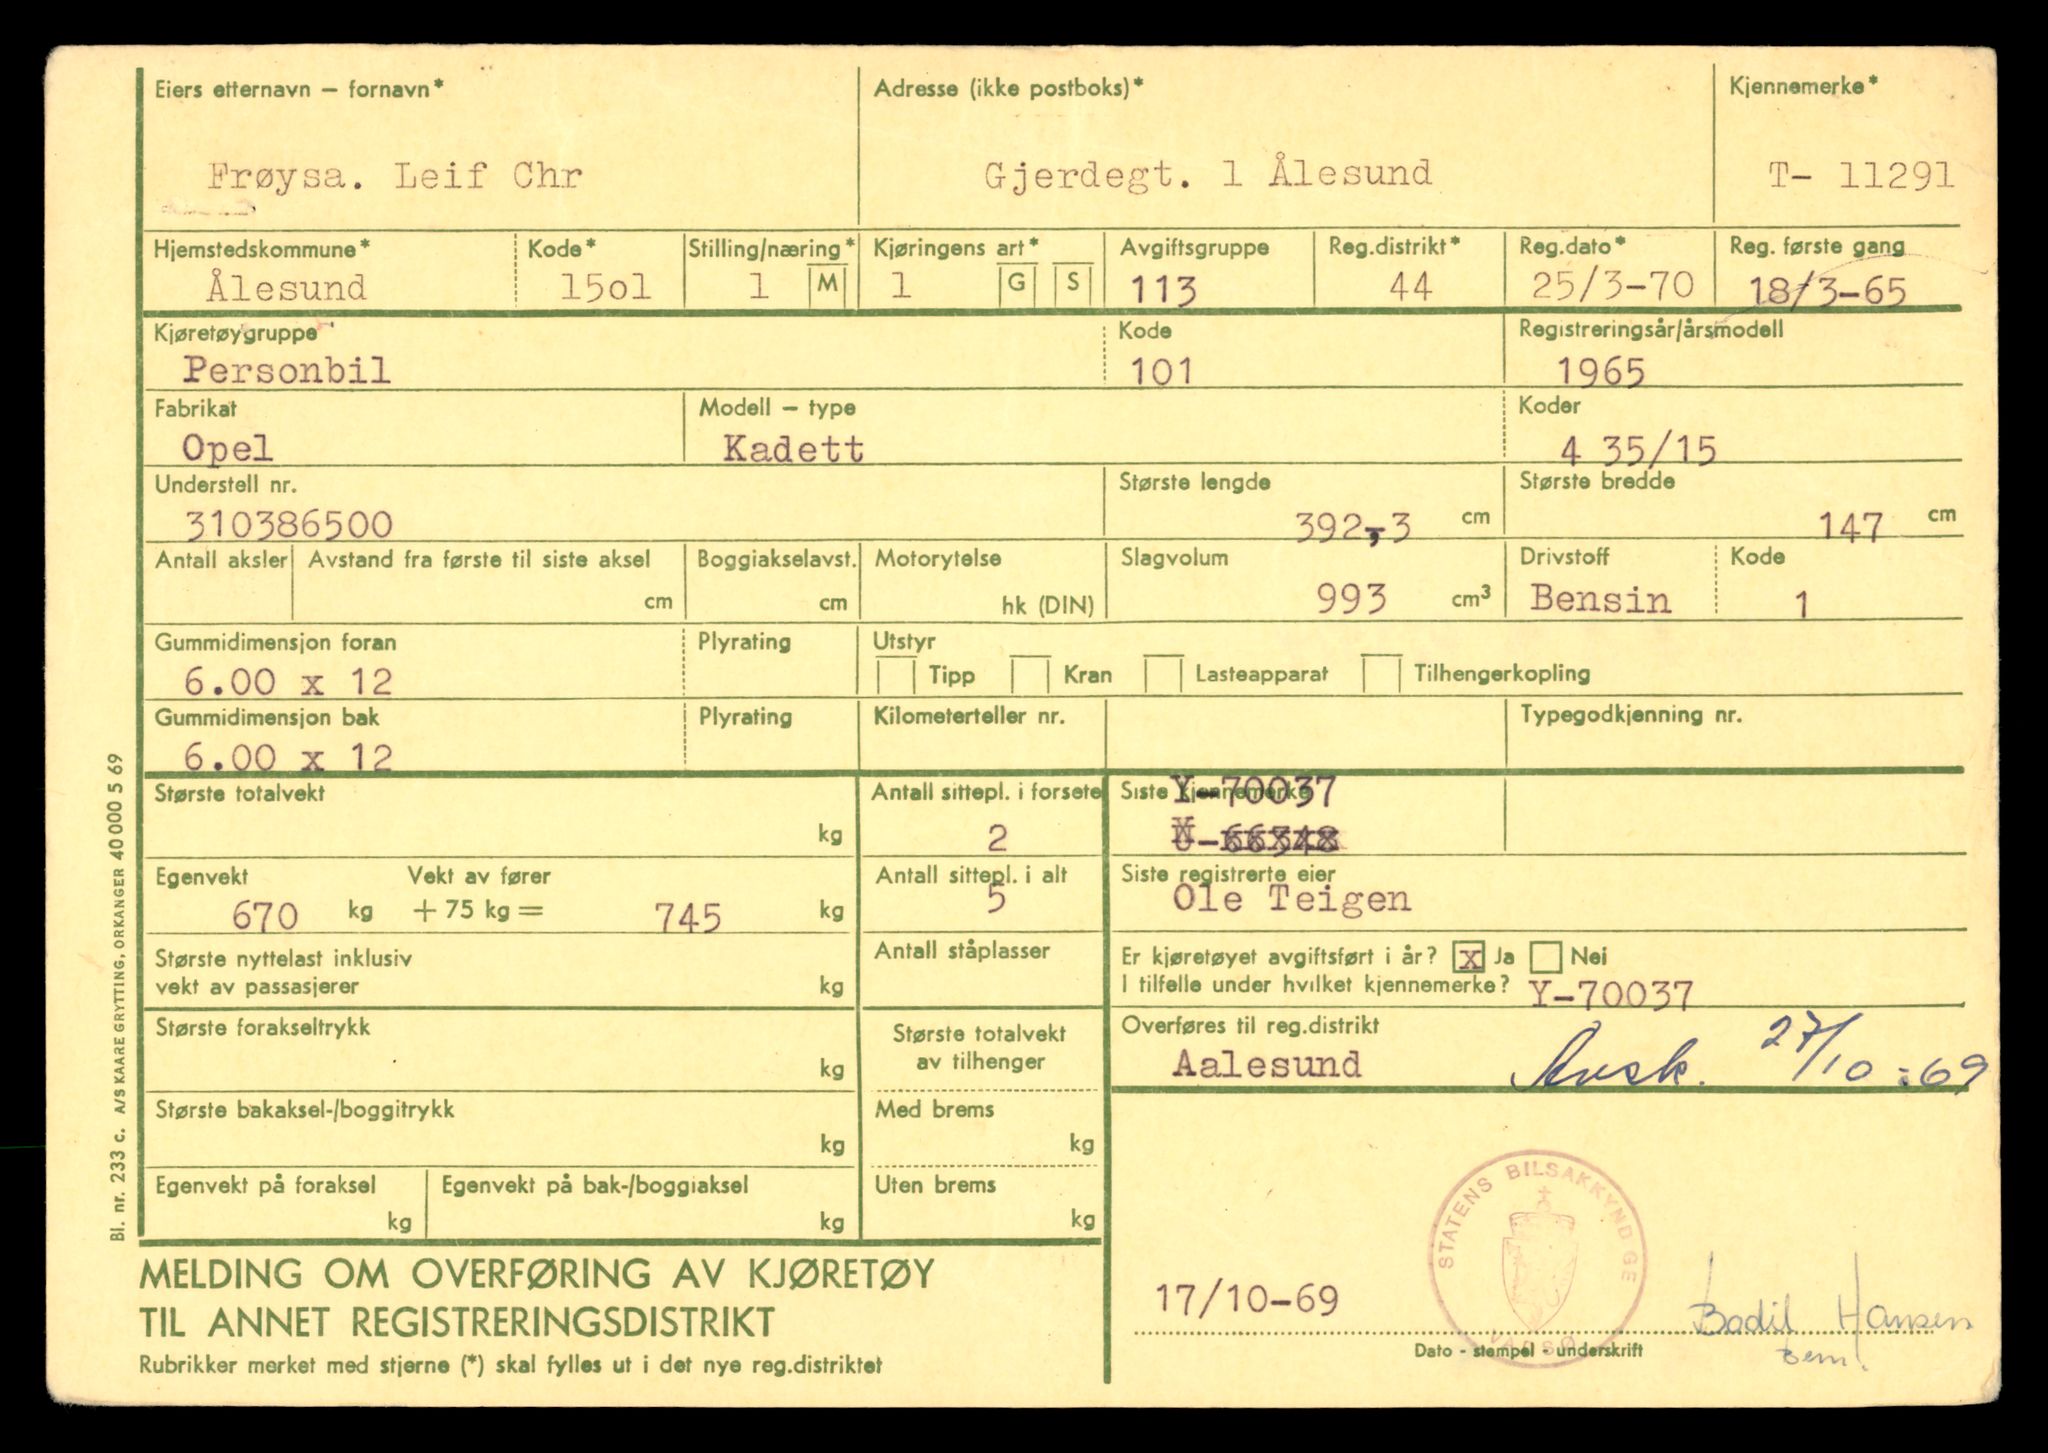 Eiers etternavn – fornavn*
Adresse (ikke postboks)*
Kjennemerke*
Frøysa. Leif Chr
Gjerdegt. 1 Ålesund
T- 11291
Hjemstedskommune*
Kode*
Stilling/næring*
Kjøringens art*
Avgiftsgruppe
Reg.distrikt*
Reg.dato*
Reg. første gang
Ålesund
15o1
1 M
1 G S
113
44
25/3-70
18/3-65
Kjøretøygruppe
Kode
Registreringsår/årsmodell
Personbil
101
1965
Fabrikat
Modell – type
Koder
Opel
Kadett
4 35/15
Understell nr.
Største lengde
Største bredde
310386500
392,-3 cm
147 cm
Antall aksler
Avstand fra første til siste aksel
Boggiakselavst.
Motorytelse
Slagvolum
Drivstoff
Kode
cm
cm
hk (DIN)
993 cm³
Bensin
1
Gummidimensjon foran
Plyrating
Utstyr
6.00 x 12
Tipp
Kran
Lasteapparat
Tilhengerkopling
Gummidimensjon bak
Plyrating
Kilometerteller nr.
Typegodkjenning nr.
6.00 x 12
Største totalvekt
kg
Antall sittepl. i forsete
2
Siste kjennemerke
Y-70037
Egenvekt
Vekt av fører
670 kg
+ 75 kg =
745 kg
Antall sittepl. i alt
5
Siste registrerte eier
Ole Teigen
Største nyttelast inklusiv
vekt av passasjerer
kg
Antall ståplasser
Er kjøretøyet avgiftsført i år? x Ja Nei
I tilfelle under hvilket kjennemerke? Y-70037
Største forakseltrykk
kg
Største totalvekt
av tilhenger
Overføres til reg.distrikt
Aalesund
Avsk. 27/10-69
Største bakaksel-/boggitrykk
kg
Med brems
kg
Egenvekt på foraksel
kg
Egenvekt på bak-/boggiaksel
kg
Uten brems
kg
MELDING OM OVERFØRING AV KJØRETØY
TIL ANNET REGISTRERINGSDISTRIKT
Rubrikker merket med stjerne (*) skal fylles ut i det nye reg.distriktet
STATENS BILSAKKYNDIGE
VADSØ
17/10-69
Bodil Hansen
Dato - stempel - underskrift
Bl. nr. 233 c. A/S KAARE GRYTTING, ORKANGER 40 000 5 69